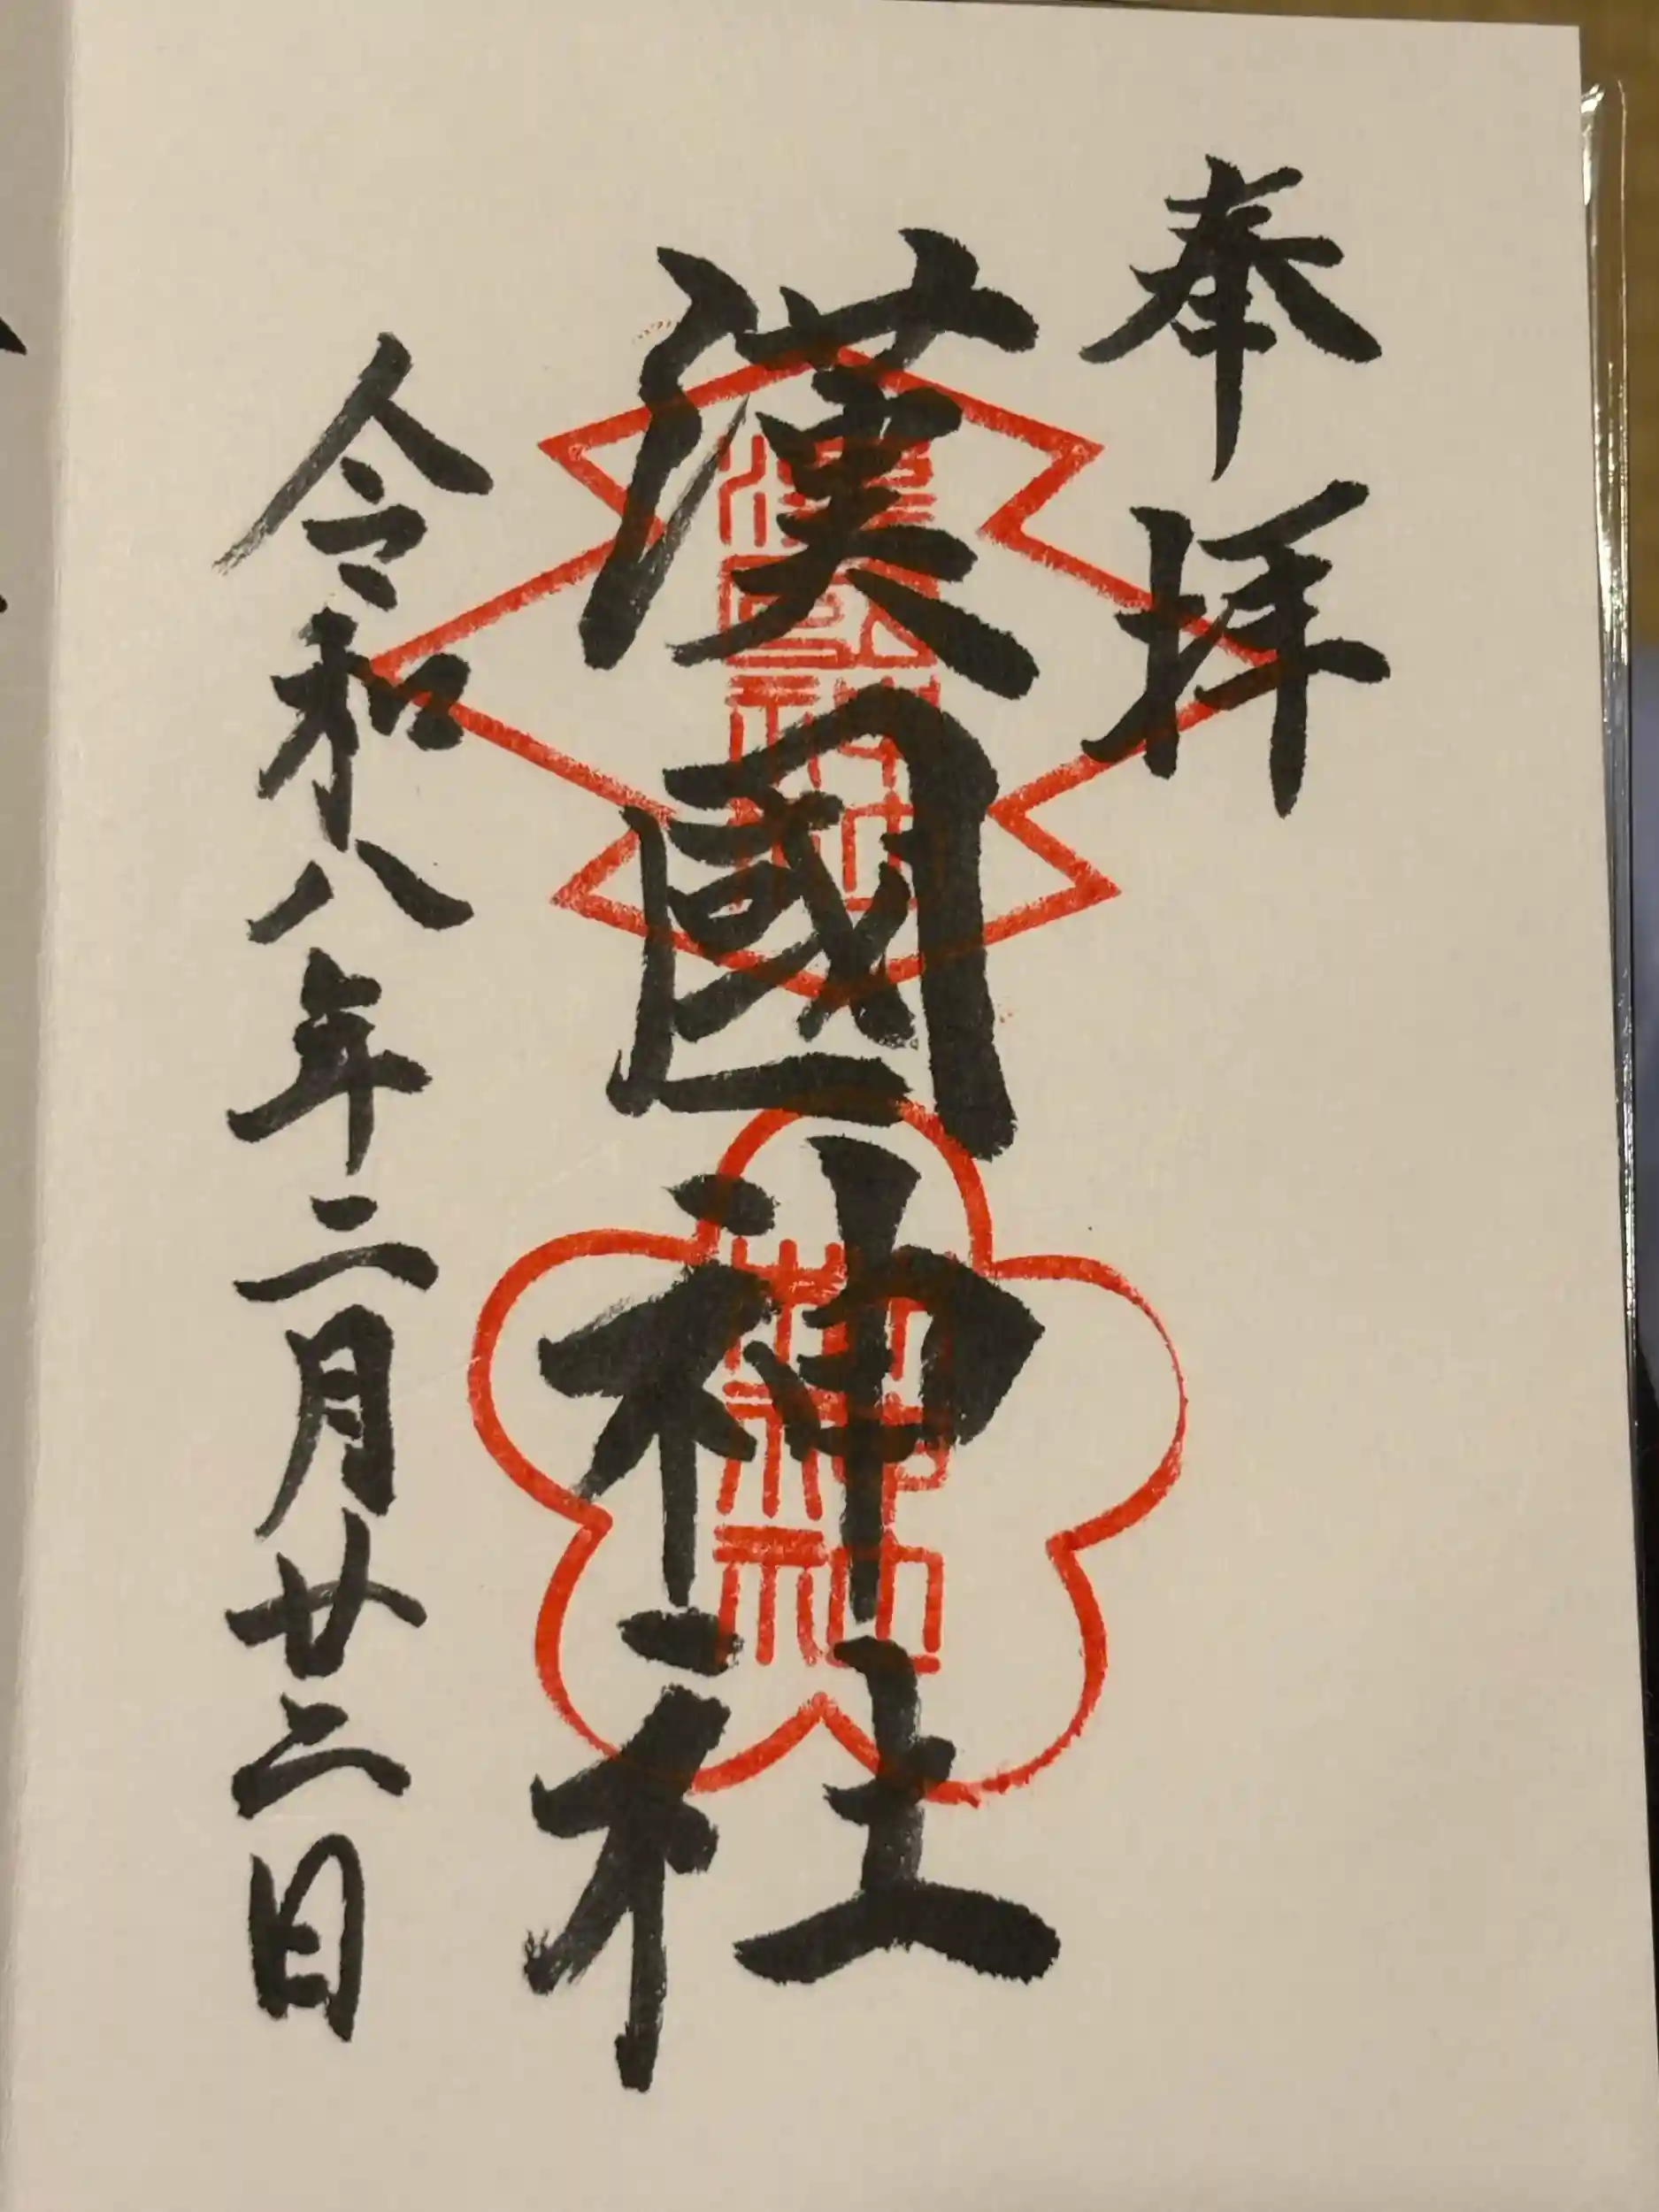 奉拝
漢國神社
令和八年二月廿二日
漢國神社
林神社